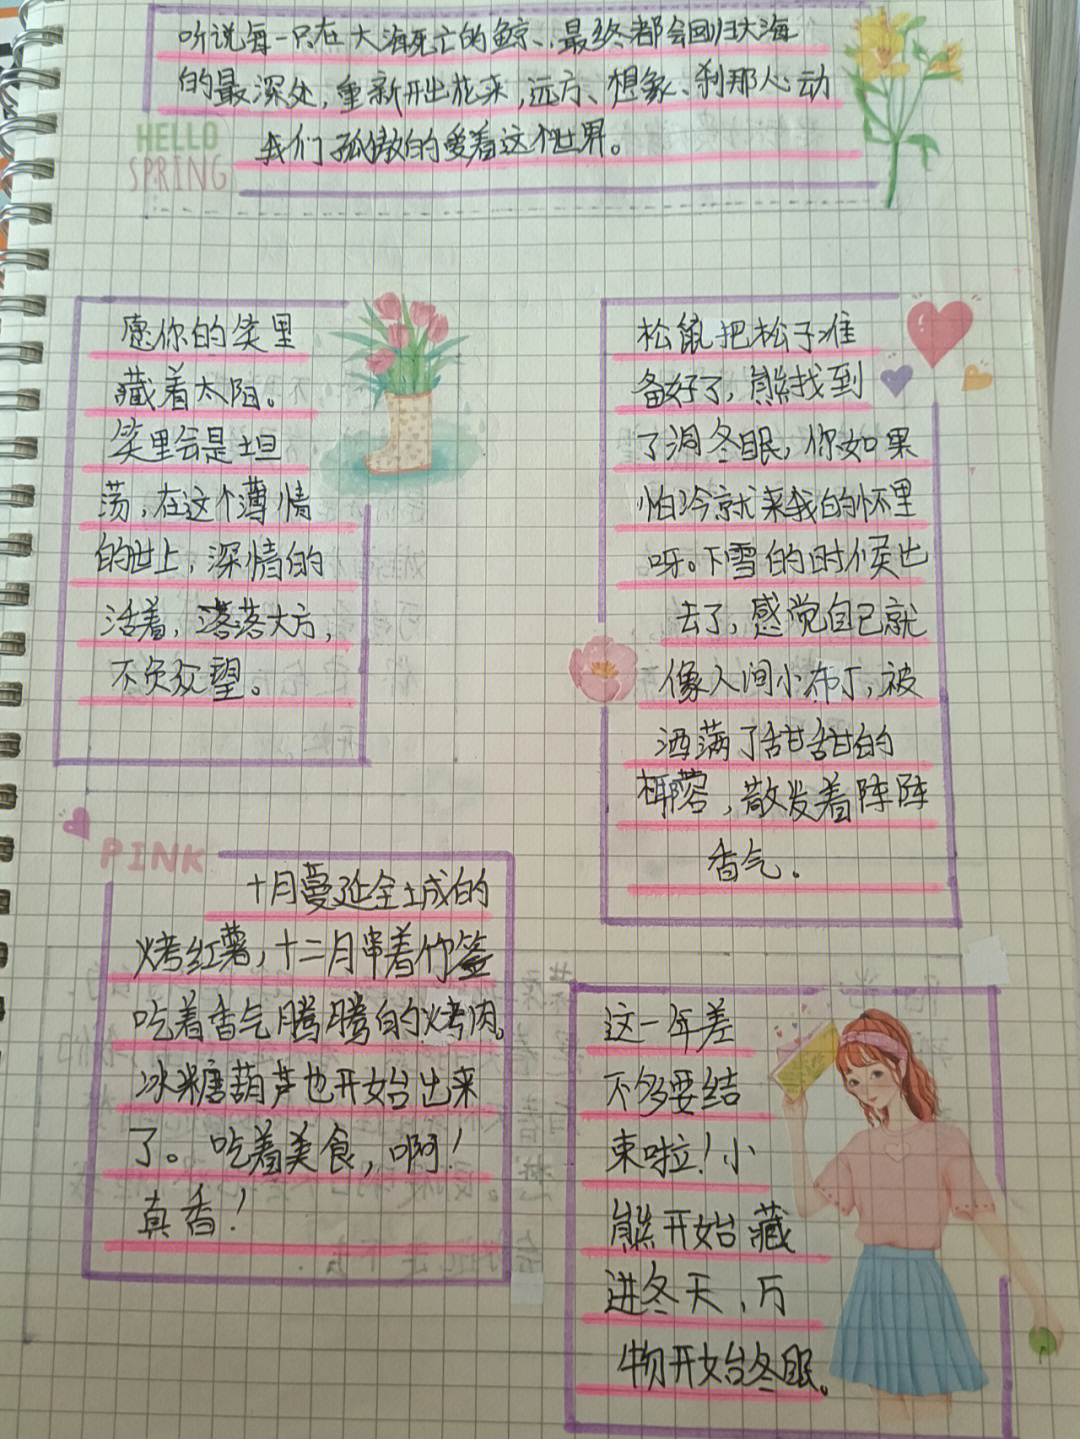 听说每一只在大海死亡的鲸、最终都会回归大海
的最深处,重新开出花来,远方、想象、刹那心动
我们孤傲的爱着这个世界。
HELLO
SPRING
愿你的笑里
藏着太阳。
笑里会是坦
荡,在这个薄情
的世上,深情的
活着,落落大方,
不负众望。
松鼠把松子准
备好了,熊找到
了洞冬眠,你如果
怕冷就来我的怀里
呀。下雪的时候出
去了,感觉自己就
像人间小布丁,被
洒满了甜甜的
椰蓉,散发着阵阵
香气.
PINK
十月蔓延全城的
烤红薯,十二月串着竹签
吃着香气腾腾的烤肉。
冰糖葫芦也开始出来
了。吃着美食,啊!
真香!
这一年差
不多要结
束啦!小
熊开始藏
进冬天,万
物开始冬眠。